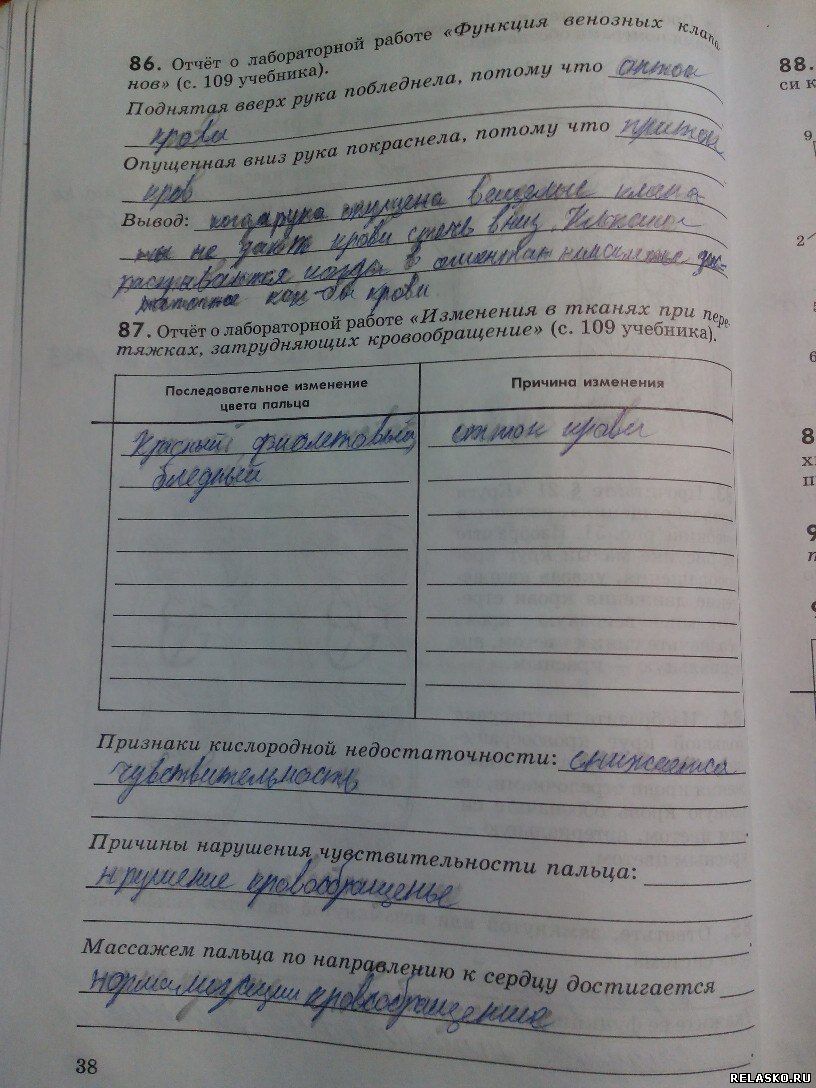 86. Отчёт о лабораторной работе «Функция венозных клапа
нов» (с. 109 учебника).
Поднятая вверх рука побледнела, потому что отток
крови
Опущенная вниз рука покраснела, потому что приток
кров
Вывод: когда рука опущена клапа
ны не дают крови стечь вниз.
раскрываются когда в
как-бы крови
87. Отчёт о лабораторной работе «Изменения в тканях при пере-
тяжках, затрудняющих кровообращение» (с. 109 учебника).
Последовательное изменение
цвета пальца
Причина изменения
Красный, фиолетовый,
бледный
отток крови
Признаки кислородной недостаточности: снижается
чувствительность
Причины нарушения чувствительности пальца:
нрушение кровообращенье
Массажем пальца по направлению к сердцу достигается
кровообращение
38
88.
си к
9
2
6
8
х
п
9
RELASKO.RU